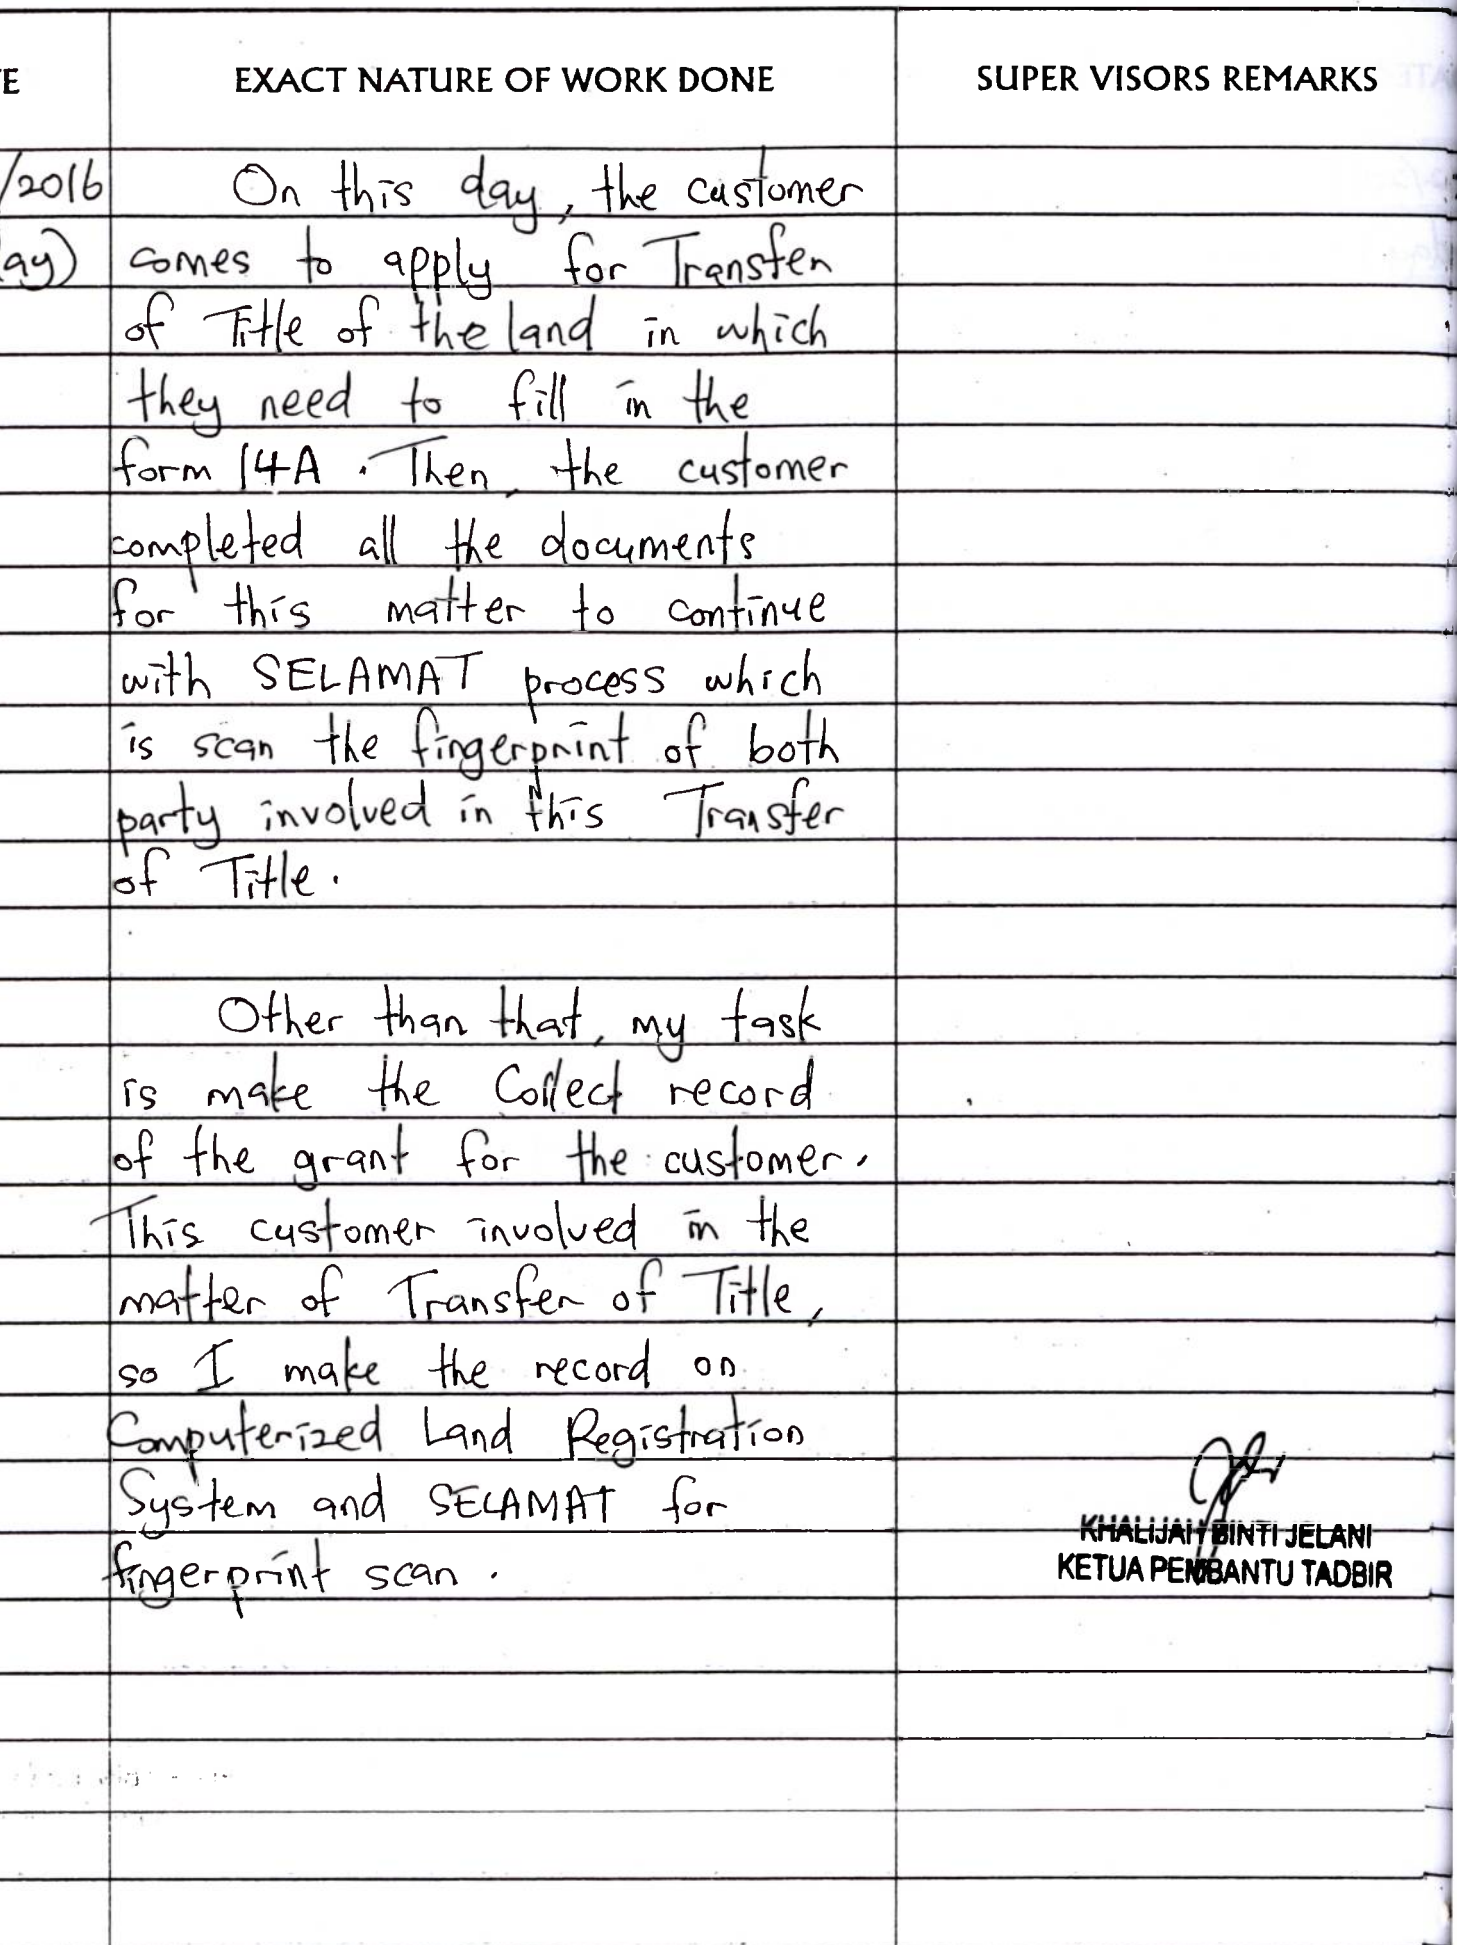 E EXACT NATURE OF WORK DONE SUPER VISORS REMARKS
/2016 On this day, the customer
ay) comes to apply for Transfer
of Title of the land in which
they need to fill in the
form 14A. Then, the customer
completed all the documents
for this matter to continue
with SELAMAT process which
is scan the fingerprint of both
party involved in this Transfer
of Title.
Other than that, my task
is make the Collect record
of the grant for the customer.
This customer involved in the
matter of Transfer of Title,
so I make the record on
Computerized Land Registration
System and SELAMAT for
fingerprint scan.
KHALIJAH BINTI JELANI
KETUA PEMBANTU TADBIR